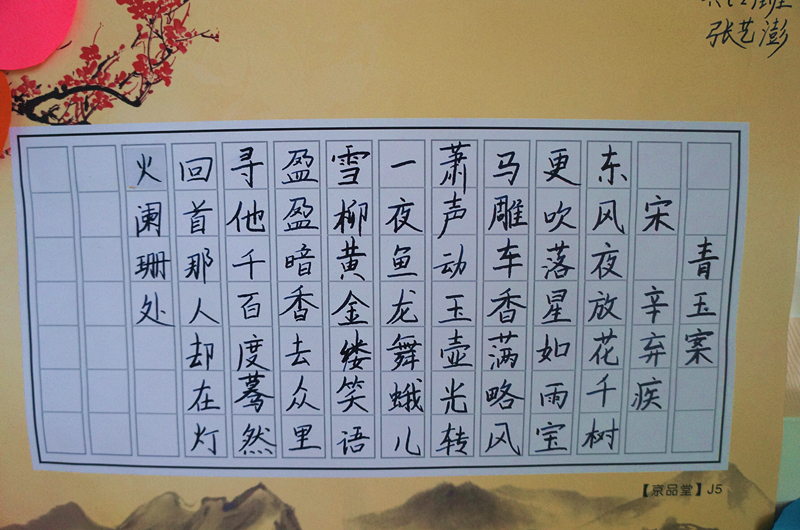 张艺澎
青玉案
宋 辛弃疾
东风夜放花千树
更吹落星如雨宝
马雕车香满略风
萧声动玉壶光转
一夜鱼龙舞蛾儿
雪柳黄金缕笑语
盈盈暗香去众里
寻他千百度蓦然
回首那人却在灯
火阑珊处
【京品堂】J5